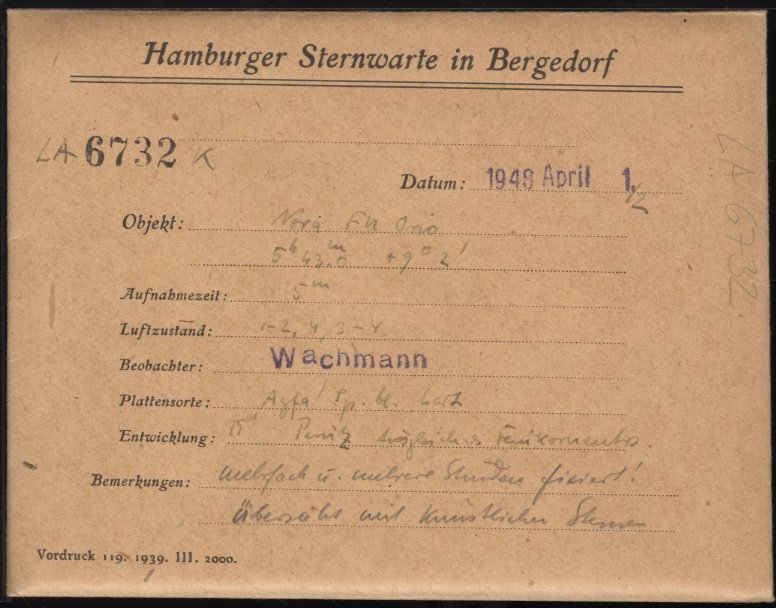 Hamburger Sternwarte in Bergedorf
LA 6732 K
Datum: 1948 April 1./2
Objekt: Nova FU Orio
5h 43.m0 +9° 2'
Aufnahmezeit: 5m
Luftzustand: 1-2, 4, 3-4
Beobachter: Wachmann
Plattensorte: Agfa Sp. bl. hart
Entwicklung: 15m
Bemerkungen: mehrfach u. mehrere Stunden fixiert!
Übersäht mit künstlichen Sternen
Vordruck 119. 1939. III. 2000.
LA 6732